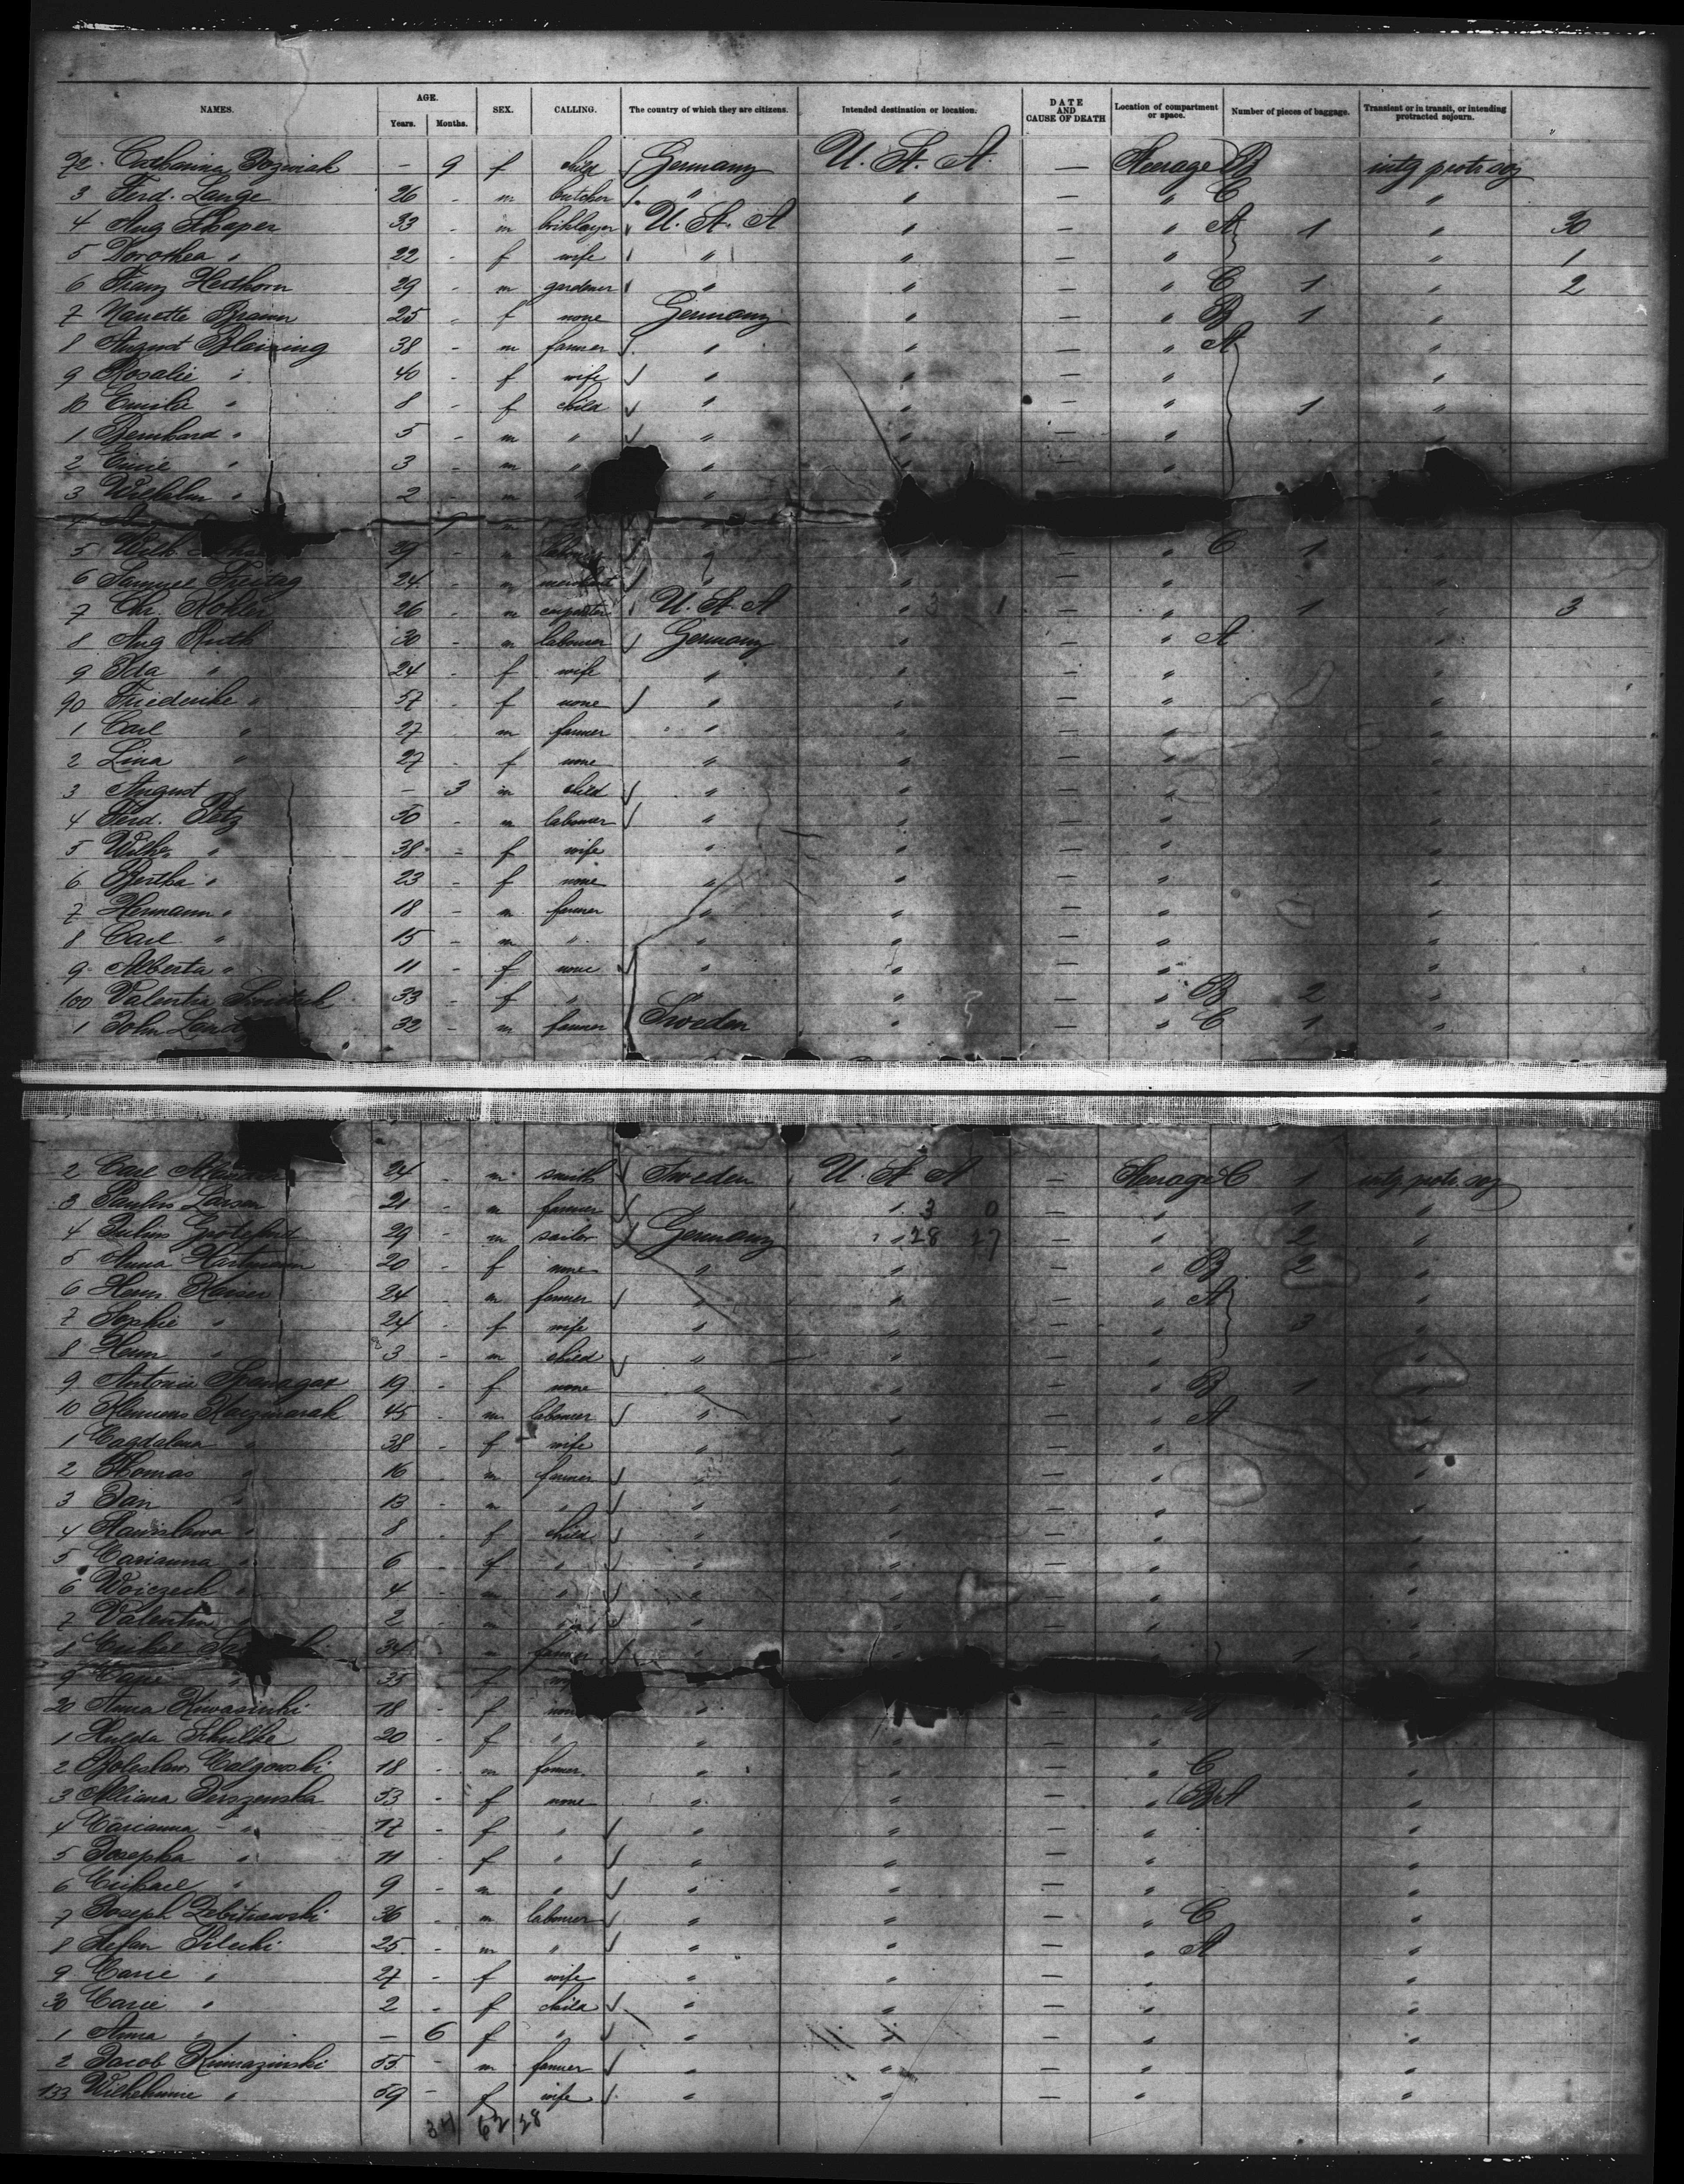 NAMES. AGE. Years. Months. SEX. CALLING. The country of which they are citizens. Intended destination or location. DATE AND CAUSE OF DEATH Location of compartment or space. Number of pieces of baggage. Transient or in transit, or intending protracted sojourn.
72 Catharina – 9 f child Germany U. S. A. — Steerage B intg protr soj
3 Ferd. Lange 26 - m butcher " " — " C "
4 Aug Schaper 33 - m briklayer U. S. A " — " A 1 " 30
5 Dorothea " 22 - f wife " " — " " 1
6 Franz 29 - m gardener " " — " C 1 " 2
7 Nanette Braun 25 - f none Germany " — " B 1 "
8 August 38 - m farmer " " — " A "
9 Rosalie " 40 - f wife " " — " "
80 Emilie " 8 - f child " " — " 1 "
1 Bernhard " 5 - m " " " — " "
2 " 3 - m " " " — "
3 Wilhelm " 2 - m "
5 Wilh. 29 - m labourer " — " C 1
6 Samuel Freitag 24 - m merchant " " — " "
7 Chr. Kohler 26 - m carpenter U. S. A " 3 1 — " 1 " 3
8 Aug Ruth 30 - m labourer Germany — " A "
9 Ida " 24 - f wife " " — " "
90 Friederike " 57 - f none " " — " "
1 Carl " 27 m farmer " " — " "
2 Lina " 27 - f none " " — " "
3 August " – 3 m child " " — " "
4 Ferd. Petz 50 - m labourer " " — " "
5 Wilhe. " 38 - f wife " " — " "
6 Bertha " 23 - f none " " — " "
7 Hermann " 18 - m farmer " " — " "
8 Carl " 15 - m " " " — " "
9 Alberta " 11 - f none " " — " "
100 Valentin 33 - f " " — " B 2 "
1 John 32 - m farmer Sweden " — " C 1 "
2 Carl 24 - m smith Sweden U. S. A — Steerage C 1 intg protr. soj
3 Paulus Larson 21 - m farmer " " 3 0 — " 1 "
4 Julius 29 - m sailor Germany " 28 27 — " 2 "
5 Anna Hartmann 20 - f none " " — " B 2 "
6 Herm. Kaiser 24 - m farmer " " — " A "
7 Sophie " 24 - f wife " " — " 3 "
8 Herm " 3 - m child " " — " "
9 Antonie 19 - f none " " — " B 1 "
10 Klemens Kaczmarak 45 - m labourer " " — " A "
1 Magdalena " 38 - f wife " " — " "
2 Thomas " 16 - m farmer " " — " "
3 Jan " 13 - m " " " — " "
4 Stanislawa " 8 - f child " " — " "
5 Marianna " 6 - f " " " — " "
6 Woiczech " 4 - m " " " — " "
7 Valentin " 2 - m " " " — " "
8 34 - m farmer " — " 1 "
9 Marie " 35 - f
20 Anna 18 - f — "
1 Hulda Schulke 20 - f " " " — " "
2 Boleslaw Malgowski 18 - m farmer " " — " C "
3 53 - f none " " — " B A "
4 Marianna " 17 - f " " " — " "
5 Josepha " 11 - f " " " — " "
6 Michael " 9 - m " " " — " "
7 Joseph 36 - m labourer " " — " C "
8 Stefan Pilecki 25 - m " " " — " A "
9 Marie " 27 - f wife " " — " "
30 Marie " 2 - f child " " — " "
1 Anna " – 6 f " " " — " "
2 Jacob 55 - m farmer " " — " "
133 Wilhelmine " 59 - f wife " " — " "
34 62 28